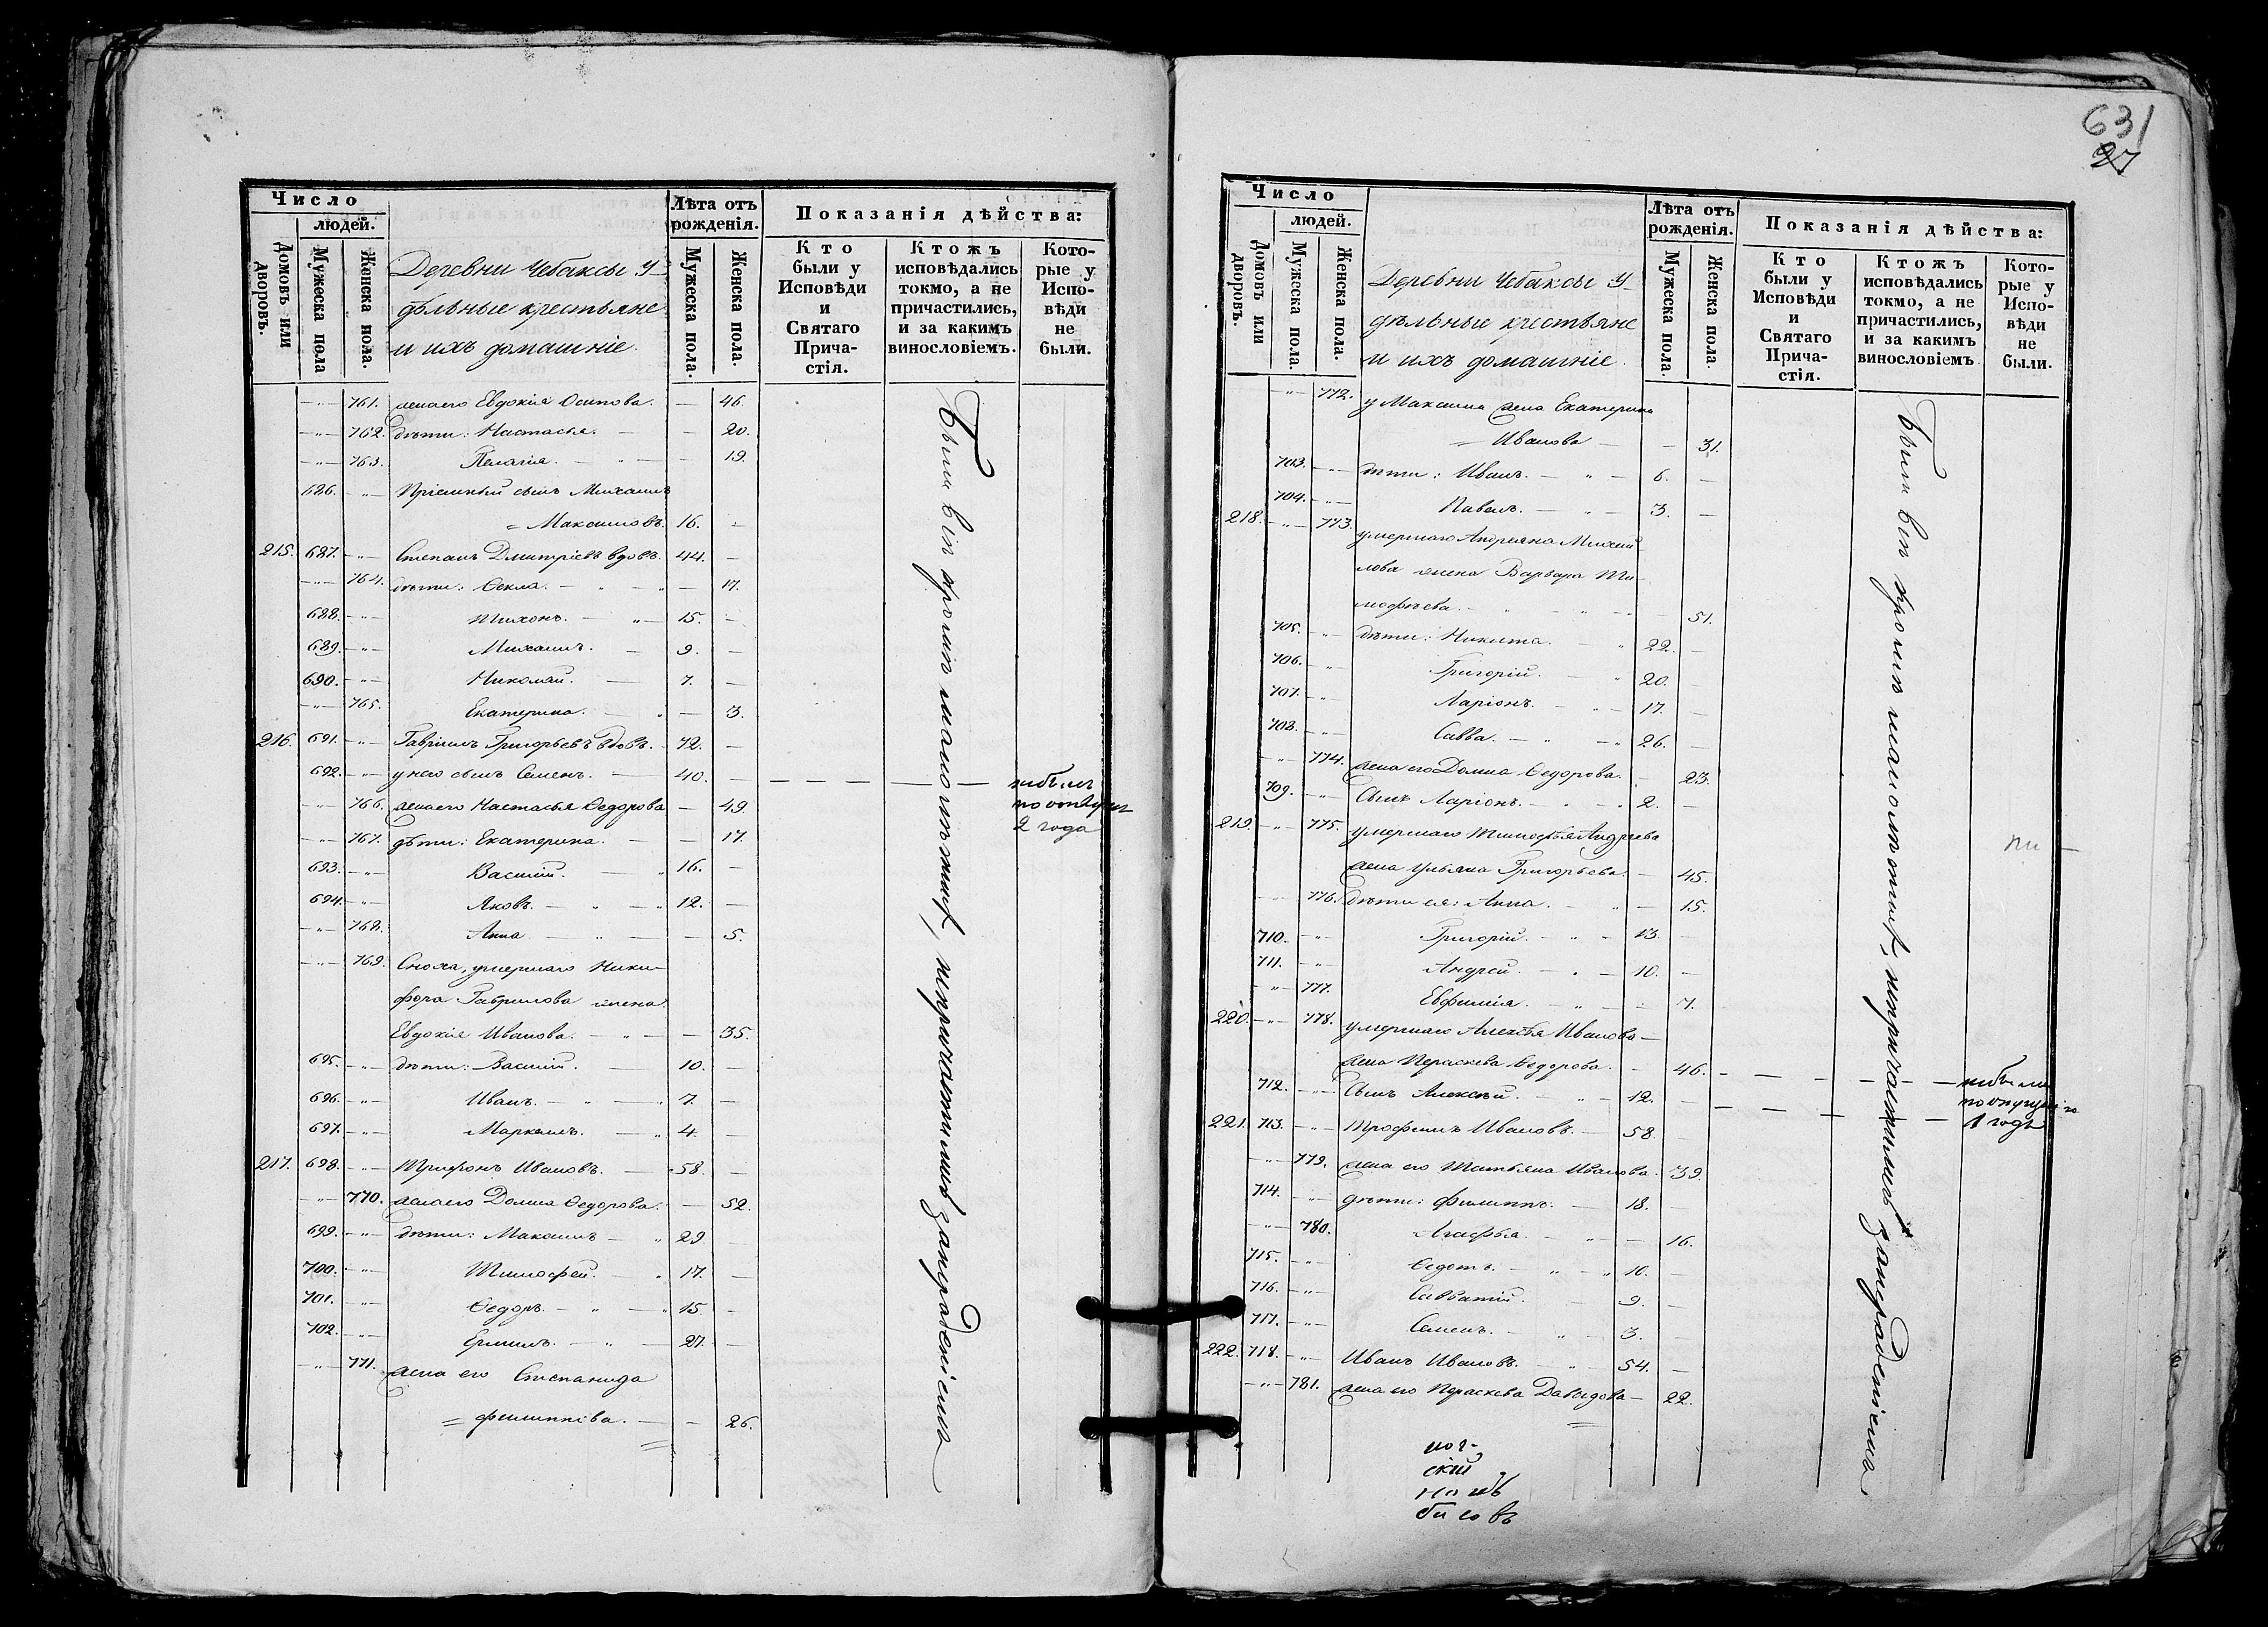 Число
людей.
Домовъ или дворовъ.
Мужеска пола
Женска пола.
Деревни Чебаксы У-
дѣльные крестьяне
и ихъ домашніе.
Лѣта отъ рожденія.
Мужеска пола.
Женска пола.
Показанія дѣйства:
Кто были у Исповѣди и Святаго Прича-стія.
Ктожъ исповѣдались токмо, а не причастились, и за какимъ винословіемъ.
Кото-рые у Испо-вѣди не были.
— " — 761. жена его Евдокія Осипова. — 46.
— " — 762. дѣти: Настасья. — — 20.
— " — 763. Пелагія. — " — — 19.
686. — " — Пріемный сынъ Михаилъ
= Максимовъ. 16. —
215. 687. — " — Степанъ Дмитріевъ вдовъ. 44. —
— " — 764. дѣти: Ѳекла. — " — " — 17.
688. — " — Тихонъ. — " — 15. —
689. — " — Михаилъ. — 9. —
690. — " — Николай. — 7. —
— " — 765. Екатерина. — " — 3.
216. 691. — " — Гавріилъ Григорьевъ вдовъ. — 72. —
692. — " — у него сынъ Семенъ. — 40. — — — — — —
— " — 766. жена его Настасья Ѳедорова — 49.
2 года
— " — 767. дѣти: Екатерина. — — 17.
693. — " — Василій. — " 16. —
694. — " — Яковъ. — " — " 12. —
— " — 768. Анна — " — — 5.
— " — 769. Сноха, умершаго Ники-
фора Гаврилова жена
Евдокія Иванова. — " — — 35.
695. — " — дѣти: Василій. — 10. —
696. — " — Иванъ. — " — " 7. —
697. — " — Маркелъ. — " 4. —
217. 698. — " — Трифонъ Ивановъ. — 58. —
— " — 770. жена его Домна Ѳедорова. — 52.
699. — " — дѣти: Максимъ — " 29 —
700. — " — Тимофей. — " 17. —
701. — " — Ѳедоръ. — " — " 15. —
702. — " — Ермилъ. — " — 27. —
— " — 771. жена его Степанида
= Филиппова. — — 26.
Были вси кромѣ малолѣтнихъ, непричастились за нерадѣніемъ
631
27
Число
людей.
Домовъ или дворовъ.
Мужеска пола.
Женска пола.
Деревни Чебаксы У-
дѣльные крестьяне
и ихъ домашніе.
Лѣта отъ рожденія.
Мужеска пола.
Женска пола.
Показанія дѣйства:
Кто были у Исповѣди и Святаго Прича-стія.
Ктожъ исповѣдались токмо, а не причастились, и за какимъ винословіемъ
Кото-рые у Испо-вѣди не были.
— " — 772. у Максима жена Екатерина
= Иванова — — 31.
703. — " — дѣти: Иванъ. — " — 6. —
704. — " — Павелъ. — " — 3. —
218. — " — 773. умершаго Андреяна Михай-
лова жена Варвара Ти-
мофѣева. — " — " — 51.
705. — " — дѣти: Никита. — " 22. —
706. — " — Григорій. — " 20. —
707. — " — Ларіонъ. — " — 17. —
708. — " — Савва. — " — " 26. —
— " — 774. жена его Домна Ѳедорова. — 23.
709. — " — Сынъ Ларіонъ. — " — " 2. —
219. — " — 775. умершаго Тимофѣя Андреева
жена Ульяна Григорьева. — 45.
— " — 776. дѣти ея: Анна. — " — 15.
710. — " — Григорій. — " — 13. —
711. — " — Андрей. — " — 10. —
— " — 777. Евфимія. — " — — 7.
220. — " — 778. умершаго Алексѣя Иванова —
жена Пераскева Ѳедорова. — 46. — — — — — —
712. — " — Сынъ Алексѣй. — " — 12. — — — — — —
221. 713. — " — Трофимъ Ивановъ. — 58. —
1 годъ
— " — 779. жена его Татьяна Иванова. 39.
714. — " — дѣти: Филиппъ. — 18. —
— " — 780. Агафья. — " — — 16.
715. — " — Ѳедотъ. — " — " 10. —
716. — " — Савватій. — 9. —
717. — " — Семенъ. — " — 3. —
222. 718. — " — Иванъ Ивановъ. — " — 54. —
— " — 781. жена его Пераскева Давыдова — 22.
Были вси кромѣ малолѣтнихъ, непричастились за нерадѣніемъ